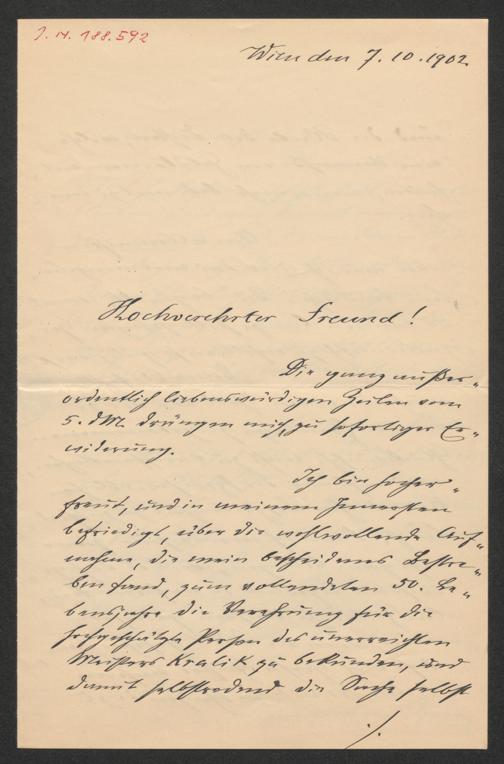 J. N. 188.592
Wien den 7.10.1902
Hochverehrter Freund!
Die ganz außer-
ordentlich liebenswürdigen Zeilen vom
5. d.M. drängen mich zu sofortiger Er-
widerung.
Ich bin hocher-
freut, und in meinem Innersten
befriedigt, über die wohlwollende Auf-
nahme, die mein bescheidenes Bestre-
ben fand, zum vollendeten 50. Le-
bensjahre die Verehrung für die
hochgeschätzte Person des unerreichten
Meisters Kralik zu bekunden, und
damit selbstredend die Sache selbst
./.